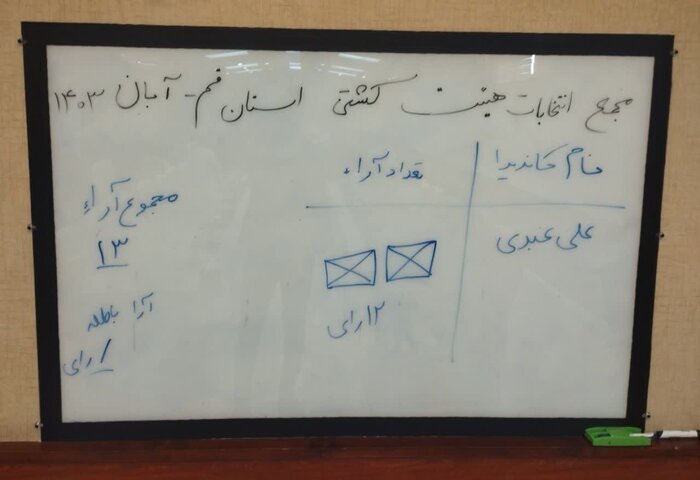 مجمع انتخابات هیئت کشتی استان قم - آبان ۱۴۰۳
نام کاندیدا
تعداد آراء
علی عبدی
۱۲ رای
مجموع آراء
۱۳
آرا باطله
۱ رای